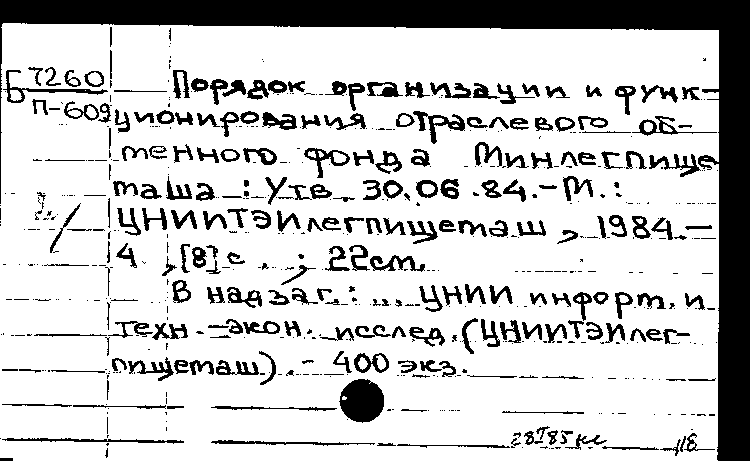 Б 7260
П-609
Порядок организации и функ-
ционирования отраслевого об-
менного фонда Минлегпище
маша : Утв. 30.06.84.-М.:
ЦНИИТЭИлегпищемаш, 1984.-
4 , [8] с . ; 22см.
В надзаг.: ... ЦНИИ информ. и
техн.-экон. исслед. (ЦНИИТЭИлег-
пищемаш). - 400 экз.
118